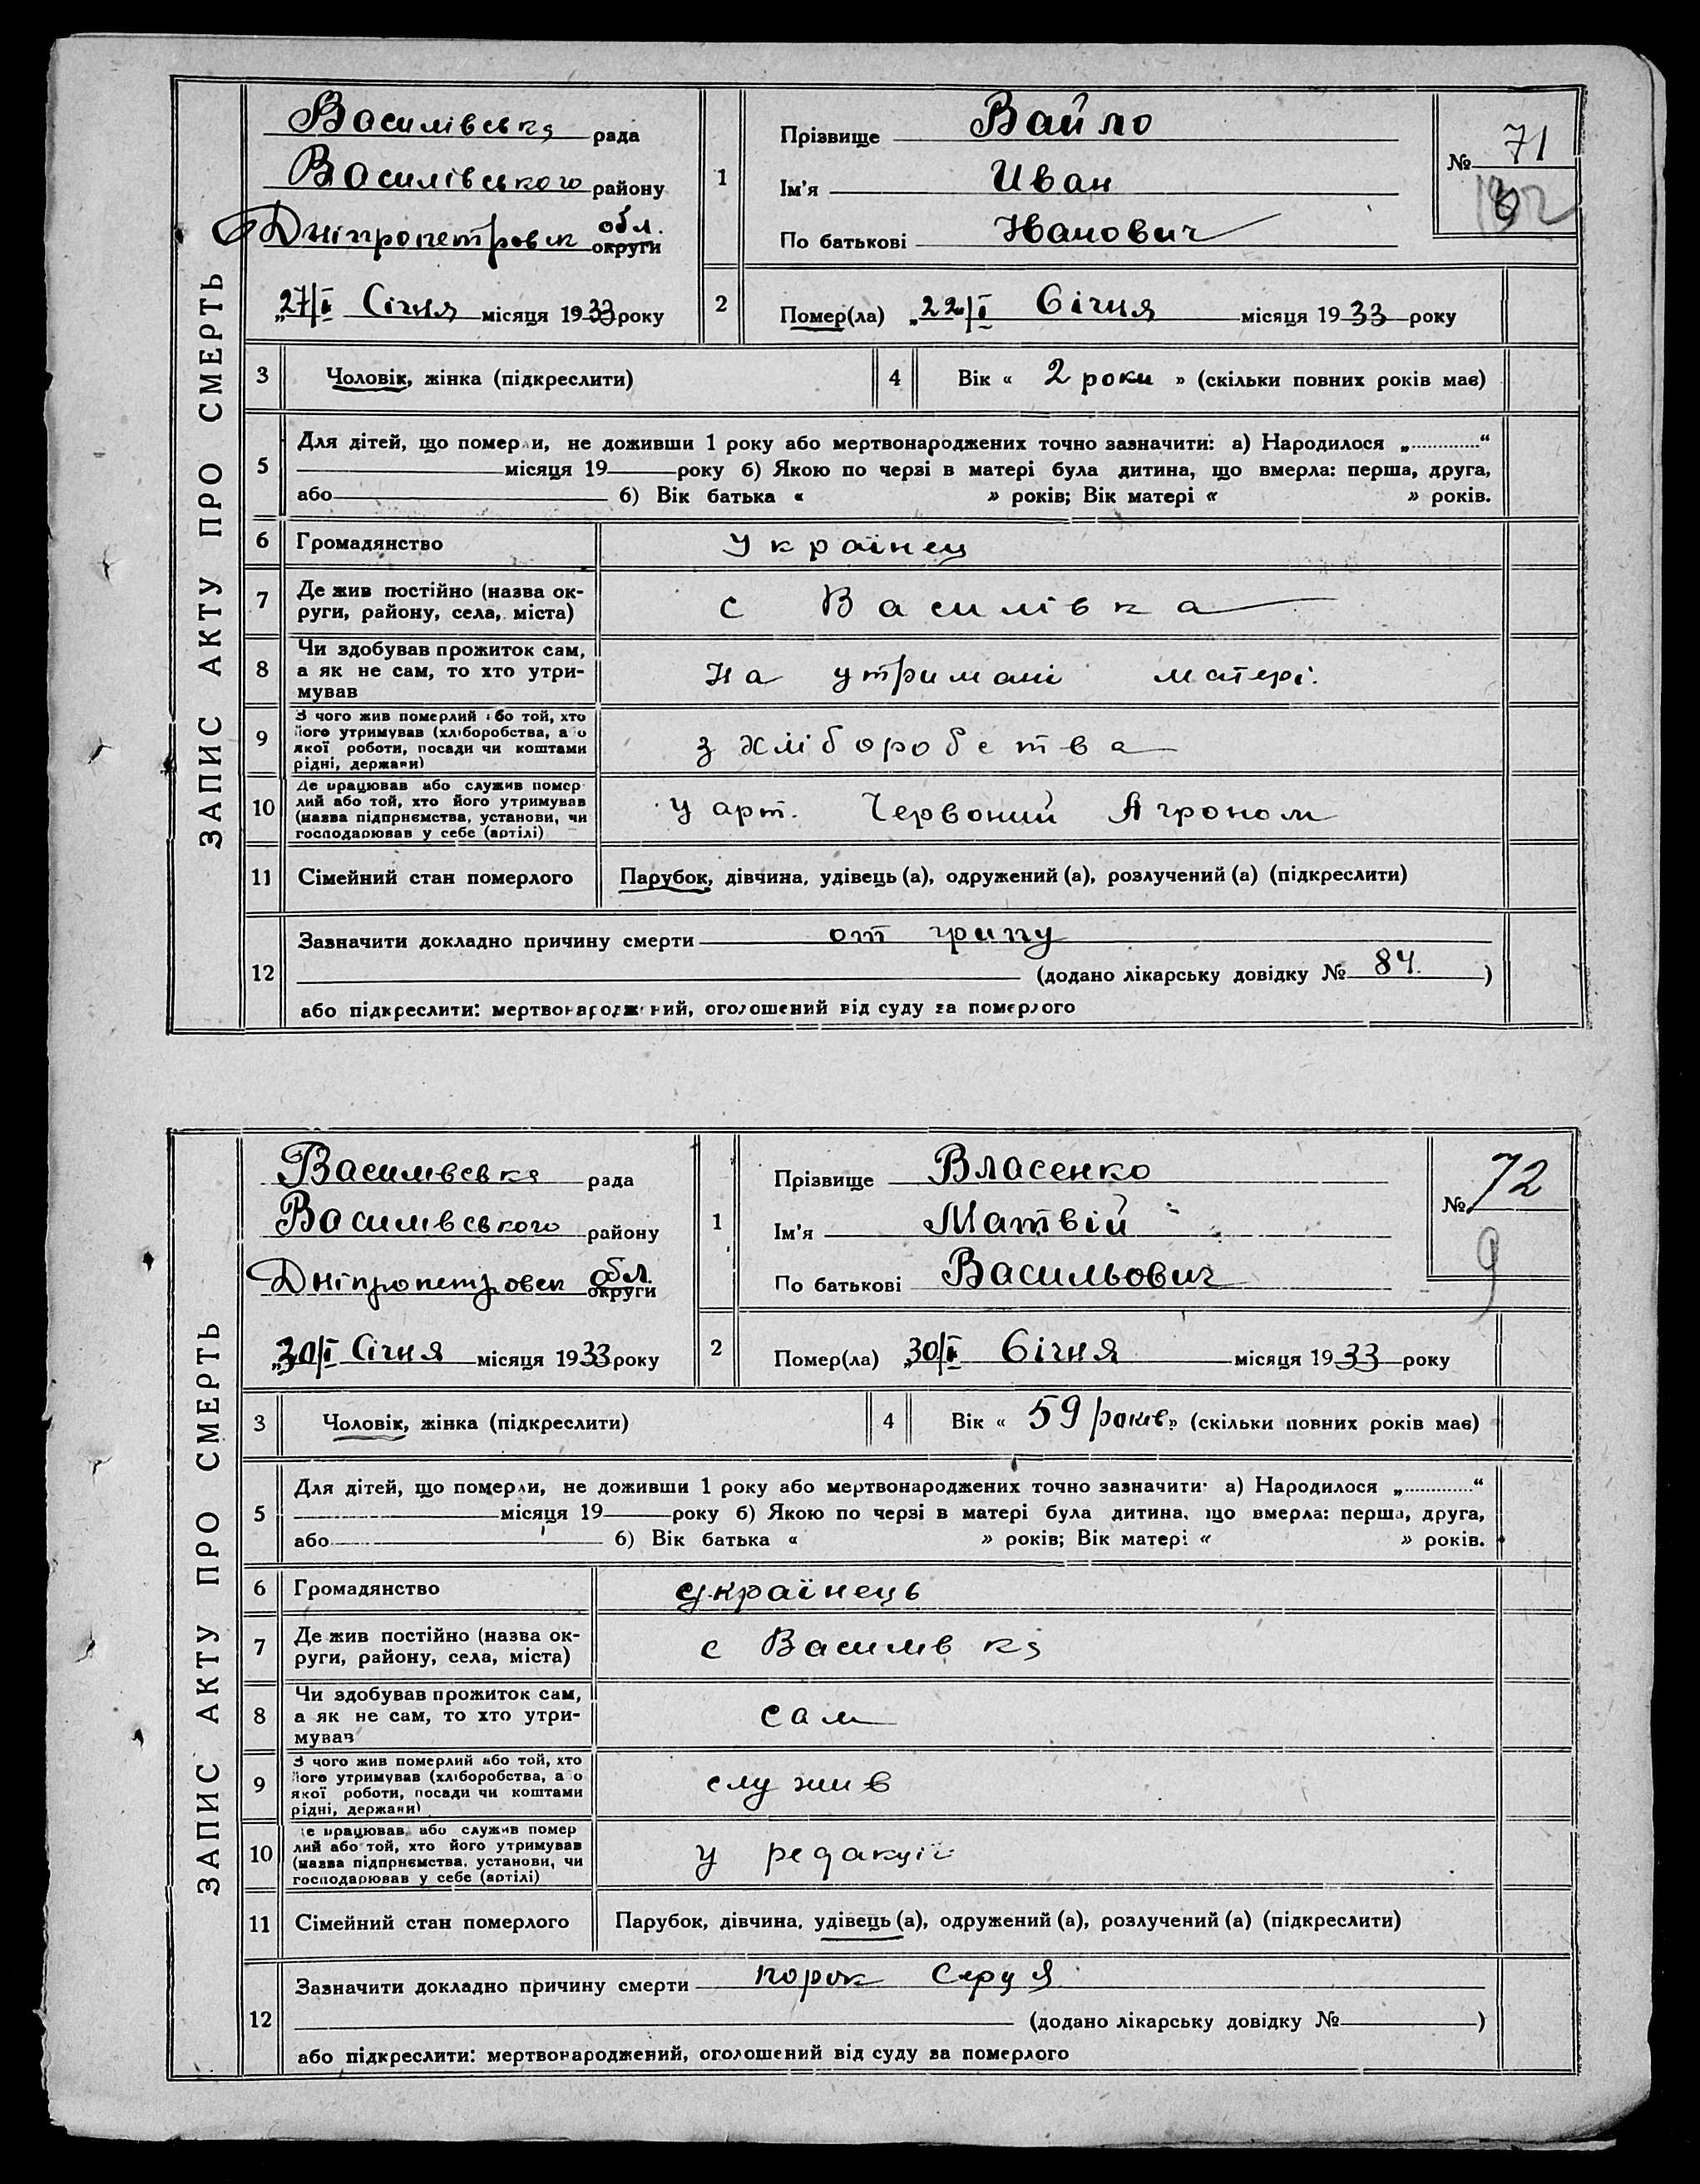 ЗАПИС АКТУ ПРО СМЕРТЬ
Василівська рада
Василівського району
Дніпропетровск обл. округи
„27/І Січня місяця 1933 року
1
Прізвище Вайло
Ім'я Иван
По батькові Иванович
№ 71
2
Помер(ла) „22/І Січня місяця 1933 року
3 Чоловік, жінка (підкреслити)
4 Вік « 2 роки » (скільки повних років має)
5 Для дітей, що померли, не доживши 1 року або мертвонароджених точно зазначити: а) Народилося „............“
місяця 19 року б) Якою по черзі в матері була дитина, що вмерла: перша, друга,
або б) Вік батька « » років; Вік матері « » років.
6 Громадянство Українец
7 Де жив постійно (назва ок-
руги, району, села, міста)
с Василівка
8 Чи здобував прожиток сам,
а як не сам, то хто утри-
мував
На утримані матері.
9 З чого жив померлий або той, хто
його утримував (хліборобства, або
якої роботи, посади чи коштами
рідні, держави)
з хліборобства
10 Де працював або служив помер
лий або той, хто його утримував
(назва підприємства, установи, чи
господарював у себе (артілі)
у арт. Червоний Агроном
11 Сімейний стан померлого Парубок, дівчина, удівець (а), одружений (а), розлучений (а) (підкреслити)
12 Зазначити докладно причину смерти от грипу
(додано лікарську довідку № 84 )
або підкреслити: мертвонароджений, оголошений від суду за померлого
ЗАПИС АКТУ ПРО СМЕРТЬ
Василівська рада
Василівського району
Дніпропетровск обл. округи
„30/І Січня місяця 1933 року
1
Прізвище Власенко
Ім'я Матвій
По батькові Васильович
№ 72
9
2
Помер(ла) „30/І Січня місяця 1933 року
3 Чоловік, жінка (підкреслити)
4 Вік « 59 років » (скільки повних років має)
5 Для дітей, що померли, не доживши 1 року або мертвонароджених точно зазначити: а) Народилося „............“
місяця 19 року б) Якою по черзі в матері була дитина, що вмерла: перша, друга,
або б) Вік батька « » років; Вік матері « » років.
6 Громадянство українець
7 Де жив постійно (назва ок-
руги, району, села, міста)
с Василівка
8 Чи здобував прожиток сам,
а як не сам, то хто утри-
мував
сам
9 З чого жив померлий або той, хто
його утримував (хліборобства, або
якої роботи, посади чи коштами
рідні, держави)
служив
10 Де працював або служив помер
лий або той, хто його утримував
(назва підприємства, установи, чи
господарював у себе (артілі)
у редакції
11 Сімейний стан померлого Парубок, дівчина, удівець (а), одружений (а), розлучений (а) (підкреслити)
12 Зазначити докладно причину смерти порок Серця
(додано лікарську довідку № )
або підкреслити: мертвонароджений, оголошений від суду за померлого